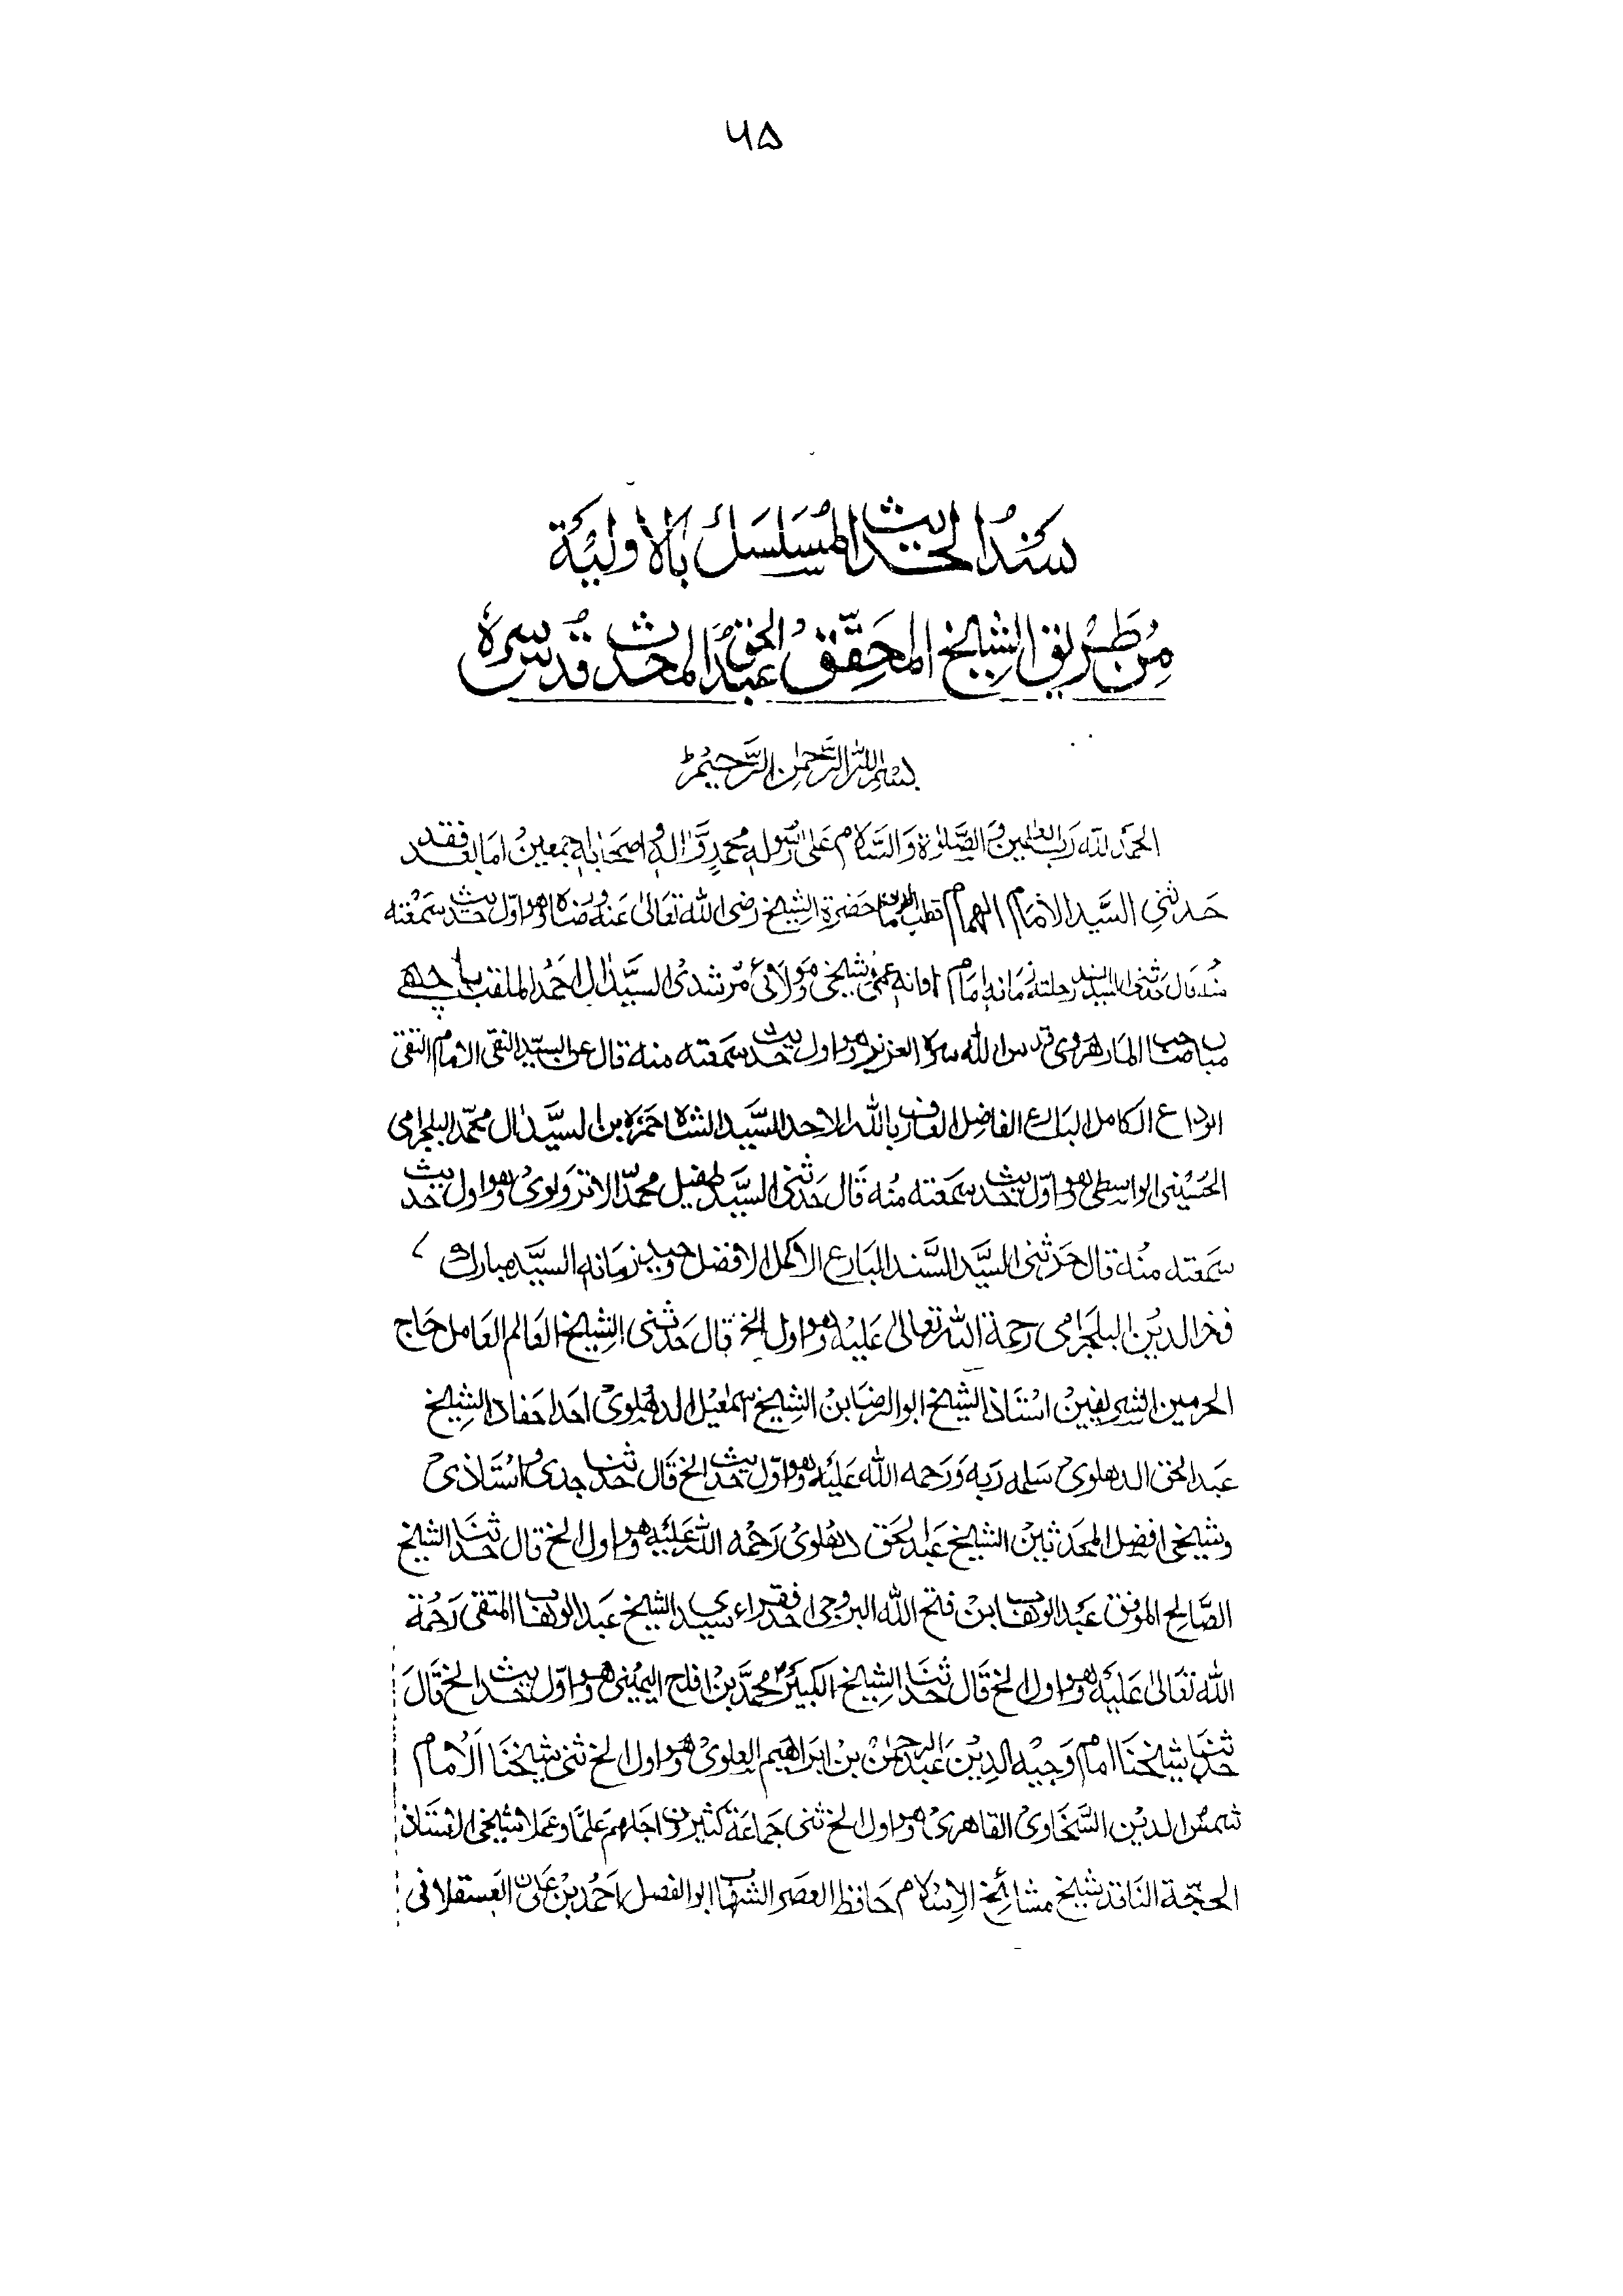 ۶۵
سَنَدُ الحَدیث المُسَلسَل بِالاَولیَّة
مِن طَریق الشیخ المُحَقِّق عَبدُ الحَق المحدث قُدِّسَ سِرہٗ
بِسْمِ اللہِ الرَّحْمٰنِ الرَّحِیْمِ
الحَمدُ للہ رَبِّ العٰلمین وَالصَّلٰوة وَالسَّلام عَلیٰ رَسُوله محمدٍ وَّاٰله واصحَابه اجمعینُ امَا بعد فقد
حَدثنی السَّید الامَام الهمام قطب الزمان حَضرة الشیخ رضی الله تعَالیٰ عَنه وَارضاہ وهو اوّل حدیث سَمعْته
منہ قال حدثنی السید السند رحلته زمَانه اِمَام اوانه عمّی وشیخی ومَولَائی ومُرشدیُ السَّیّد اٰل احمَدُ الملقب باچھے
میاں صَاحب المارهروی قدس الله سرہ العزیز وهو اول حدیث سَمَعته منه قال عن السیّد النقی الامَام التقی
الوداع الکامل البارع الفاضل العارف باللہ الاحد السَّید الشاہ حَمزَہ بن السَیّد اٰل محمّد البلجرامی
الحُسَینی الواسطی وهو اوّل حدیث سَمَعته منُه قَال حَدثنی السیَّد طفیل محمّد الاترولوی وهو اول حدیث
سَمَعته منُه قال حَدثنی السَّید السَّند البَارع الاکمل الافضل وحید زمانه السیَّد مبارک
فخر الدین البلجرامی رحمة اللہ تعالیٰ عَلیْه وهو اول الخ قال حَدثنی الشیخ العَالم العَامل حَاج
الحرمین الشریفین استَاذ الشیخ ابو الرضا بن الشیخ اسمٰعیل الدهلوی احد احفاد الشیخ
عبد الحق الدهلوی سَلمه رَبه وَرَحمه الله عَلیَه وهو اوّل حدیث الخ قَال حدثنا جدی واستَاذی
وشیخی افضل المحدثین الشیخ عَبد الحَق دهلوی رَحمُه اللہ عَلیَه وهو اول الخ قال حَدثنَا الشیخ
الصَّالح الموفق عَبد الوهاب ابن فتح الله البروجی احد فقراء سیدی الشیخ عبد الوهاب المتقی رَحمُة
اللّه تعَالیٰ عَلیَه وهو اول الخ قَال حَدثنَا الشیخ الکبیر محمَّد بن افلح الیمینی وهو اوّل حدیث الخ قَالَ
حَدثنا شیخنَا امام وَجیْه الدیْن عَبد الرحمٰن بن ابرَاهیم العلوی وهو اول الخ ثنی شیخنَا الاِمام
شمسُ الدیْن السَّخاوی القاهری وهو اول الخ ثنی جَمَاعَة کثیرون اجلهم علمًا وعَملا شیخی الاستَاذ
الحجّة النَاقد شیخ مشائخ الاِسْلام حَافظ العصَر الشهاب ابو الفضل احَمُد بن عَلی العَسقلانی